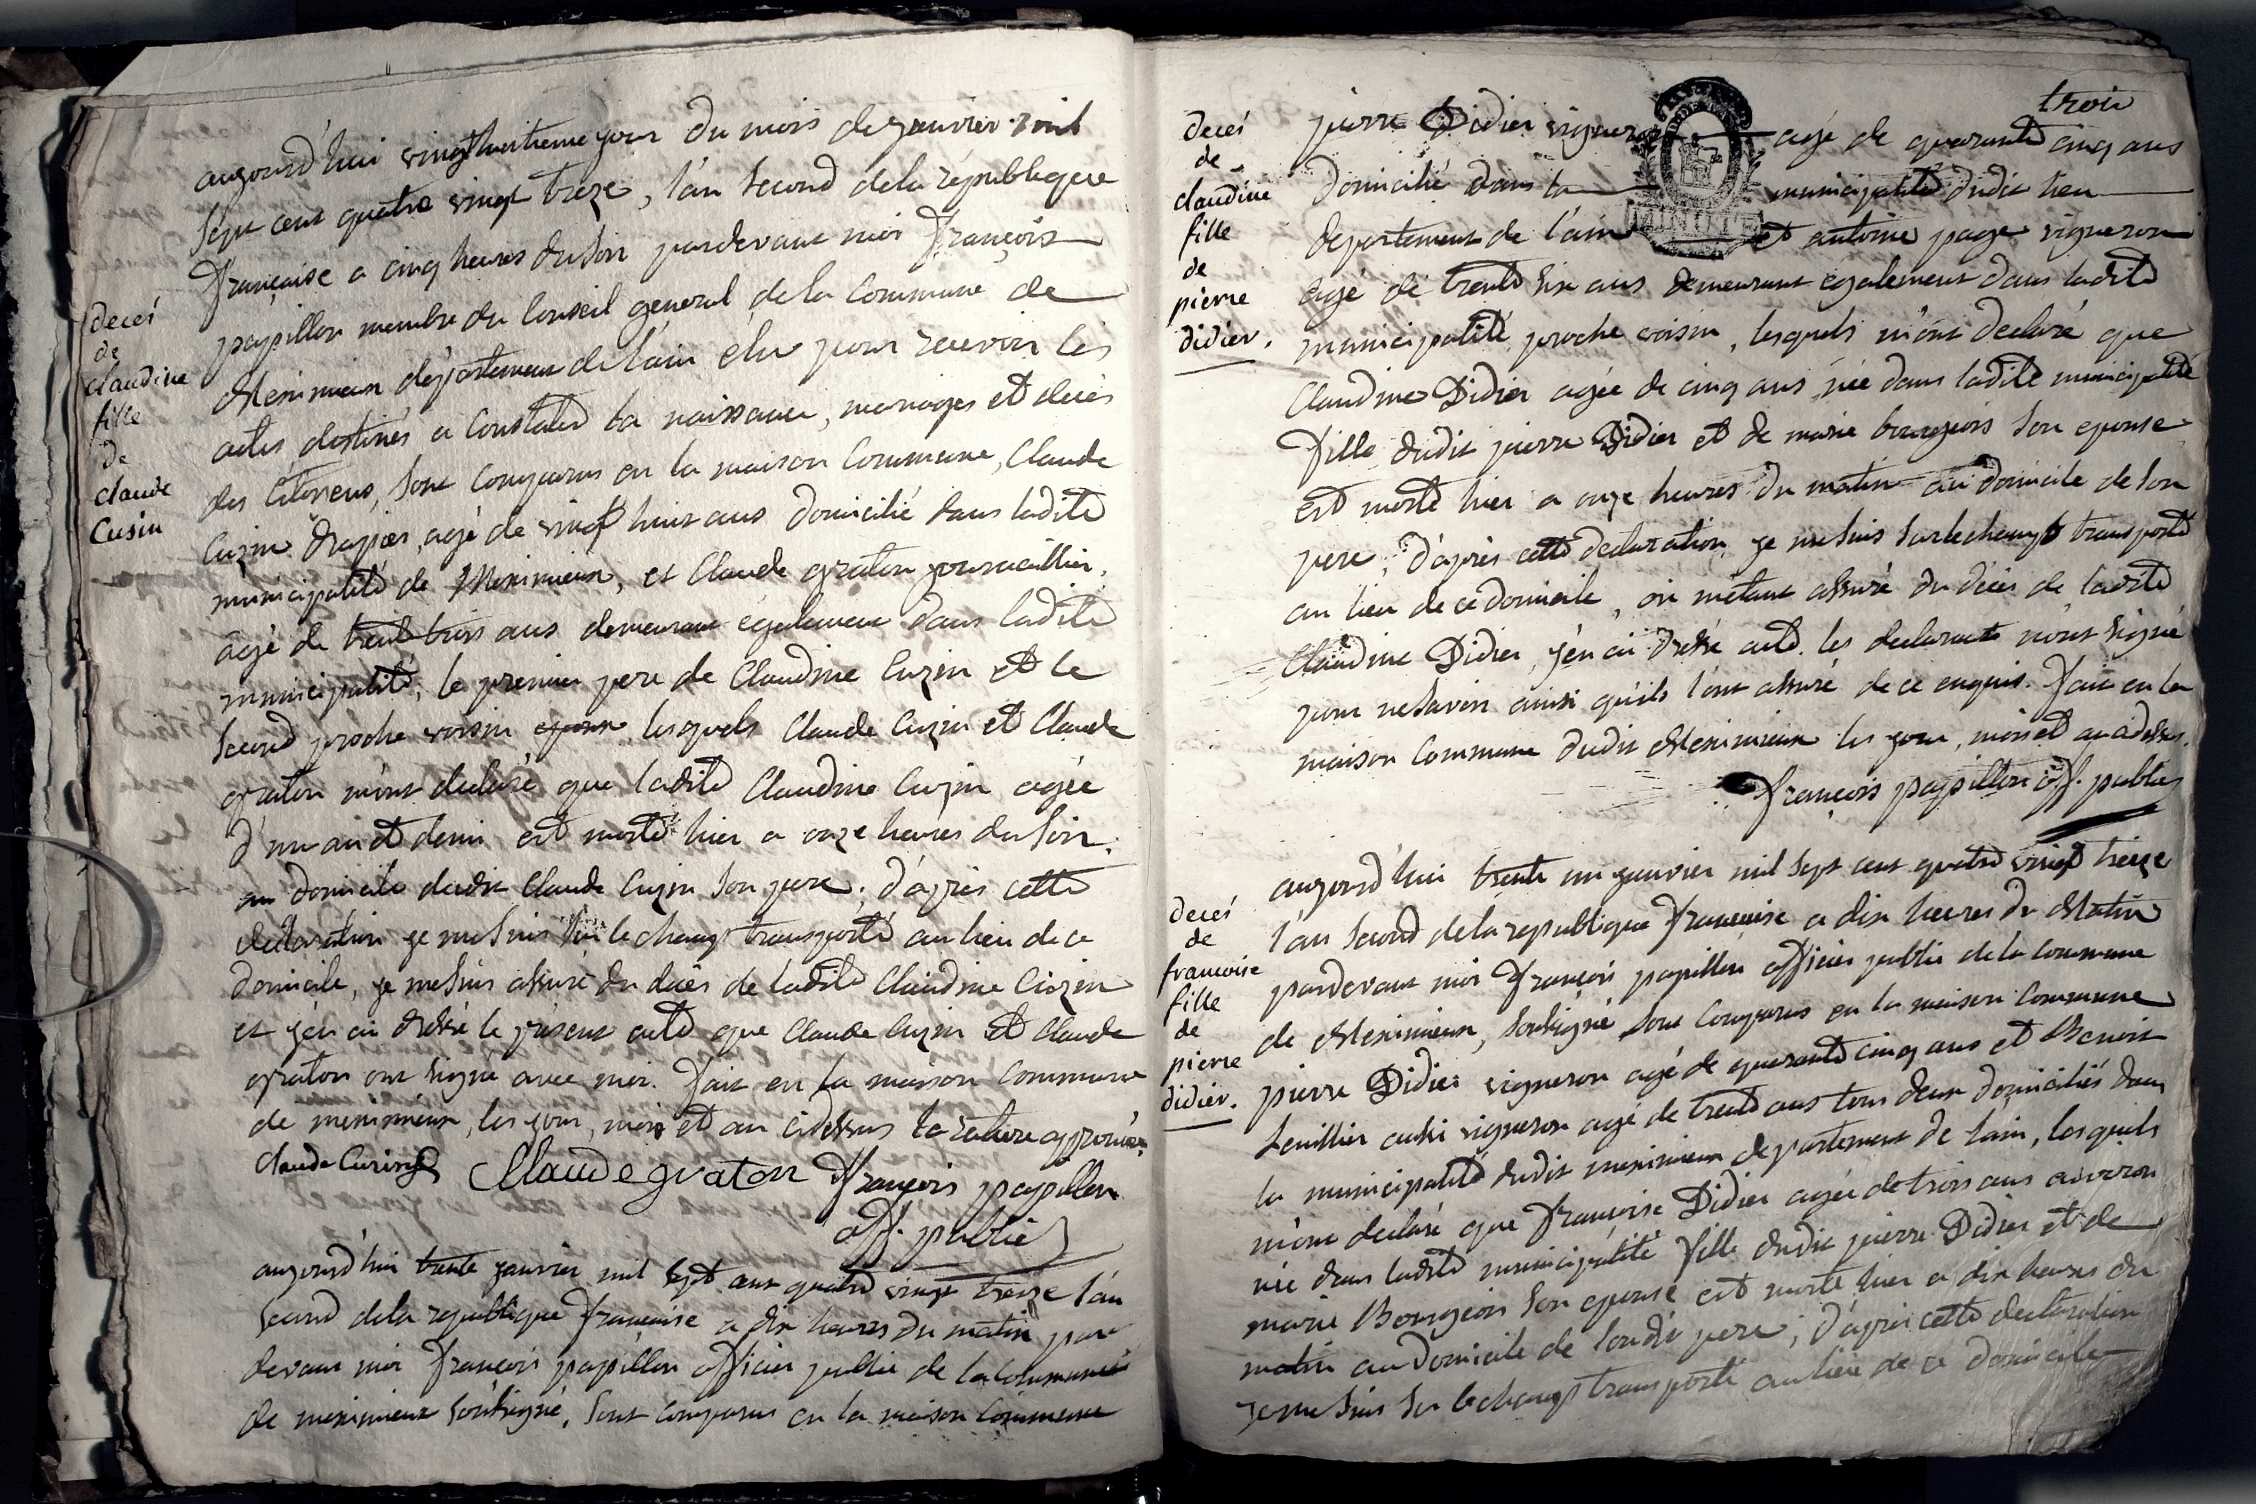 decés
de
claudine
fille
de
claude
Cusin
aujourd'hui vingt huitieme jour du mois de janvier mil
sept cent quatre vingt treze, l'an second de la république
française a cinq heures du soir pardevant moi françois
papillon membre du Conseil general de la Commune de
Meximieux département de l'ain élu pour recevoir les
actes destinés a Constater la naissance, mariages et décés
des Citoyens, sont Comparus en la maison Commune, Claude
Cuzin drapier, agé de vingt huit ans domicilié dans ladite
municipalité de Meximieux, et Claude graton journaillier,
agé de trente trois ans demeurant également dans ladite
municipalité, le premier pere de Claudine Cuzin et le
second proche voisin lesquels Claude Cuzin et Claude
graton m'ont declaré que ladite Claudine Cuzin agée
d'un an et demi est morte hier a onze heures du soir,
au domicile dudit Claude Cuzin son pere; d'après cette
declaration je me suis sur le champ transporté au lieu de ce
domicile, je me suis assuré du décès de ladite Claudine Cuzin
et j'en ai dressé le présent acte que Claude Cuzin et Claude
graton ont signé avec moi. fait en la maison Commune
de meximieux, les jour, mois et an cidessus la rature approuvée.
Claude Cuzin Claude graton françois papillon
off. public
aujourd'hui trente janvier mil sept cent quatre vingt treize l'an
second de la republique française a dix heures du matin par
devant moi françois papillon officier public de la Commune
de meximieux soussigné, sont comparus en la maison Commune
trois
decés
de
claudine
fille
de
pierre
didier.
pierre Didier vigneron agé de quarante cinq ans
domicilié dans la municipalité dudit lieu
departement de l'ain et antoine page vigneron
agé de trente six ans demeurant également dans ladite
municipalité proche voisin, lesquels m'ont declaré que
Claudine Didier agée de cinq ans, née dans ladite municipalité
fille dudit pierre Didier et de marie bourgeois son epouse
est morte hier a onze heures du matin au domicile de son
pere; d'après cette declaration je me suis sur le champ transporté
au lieu de ce domicile, où m'étant assuré du décès de ladite
Claudine Didier, j'en ai dressé acte. les declarants n'ont signé
pour ne savoir ainsi qu'ils l'ont assuré de ce enquis. fait en la
maison Commune dudit Meximieux les jour, mois et an cidessus.
françois papillon off. public
decés
de
francoise
fille
de
pierre
didier.
aujourd'hui trente un janvier mil sept cent quatre vingt treize
l'an second de la republique française a dix heures du Matin
pardevant moi françois papillon officier public de la Commune
de Meximieux, soussigné sont Comparus en la maison Commune
pierre Didier vigneron agé de quarante cinq ans et Benoit
aussi vigneron agé de trente ans tous deux domiciliés dans
la municipalité dudit meximieux departement de l'ain, lesquels
m'ont declaré que françoise Didier agée de trois ans environ
née dans ladite municipalité fille dudit pierre Didier et de
marie Bourgeois son epouse est morte hier a dix heures du
matin au domicile de sondit pere; d'après cette declaration
je me suis sur le champ transporté au lieu de ce domicile